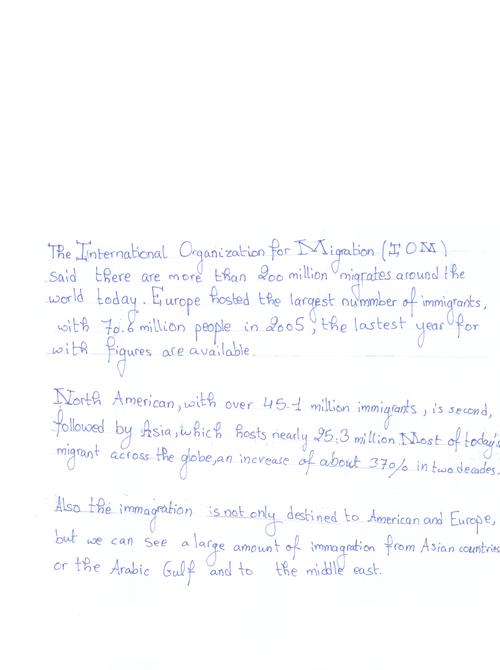 The International Organization for Migration (IOM)
said there are more than 200 million migrates around the
world today. Europe hosted the largest nummber of immigrants,
with 70.6 million people in 2005, the lastest year for
with figures are available.
North American, with over 45.1 million immigrants, is second,
followed by Asia, which hosts nearly 25.3 million. Most of today's
migrant across the globe, an increase of about 37% in two decades.
Also the immagration is not only destined to American and Europe,
but we can see a large amount of immagration from Asian countries
or the Arabic Gulf and to the middle east.